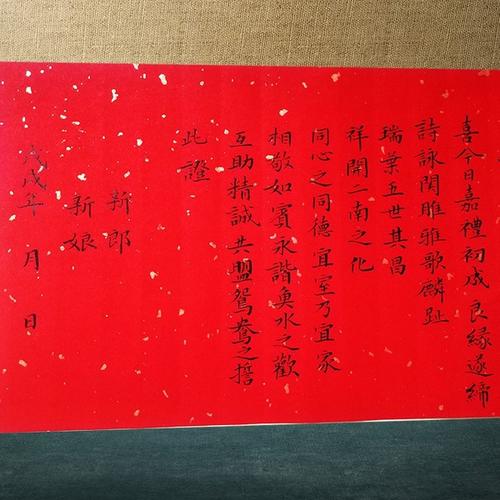 喜今日嘉禮初成良緣遂締
詩詠関雎雅歌麟趾
瑞葉五世其昌
祥開二南之化
同心之同德宜室乃宜家
相敬如賓永諧魚水之歡
互助精誠共盟鴛鴦之誓
此證
新郎
新娘
戊戌年 月 日